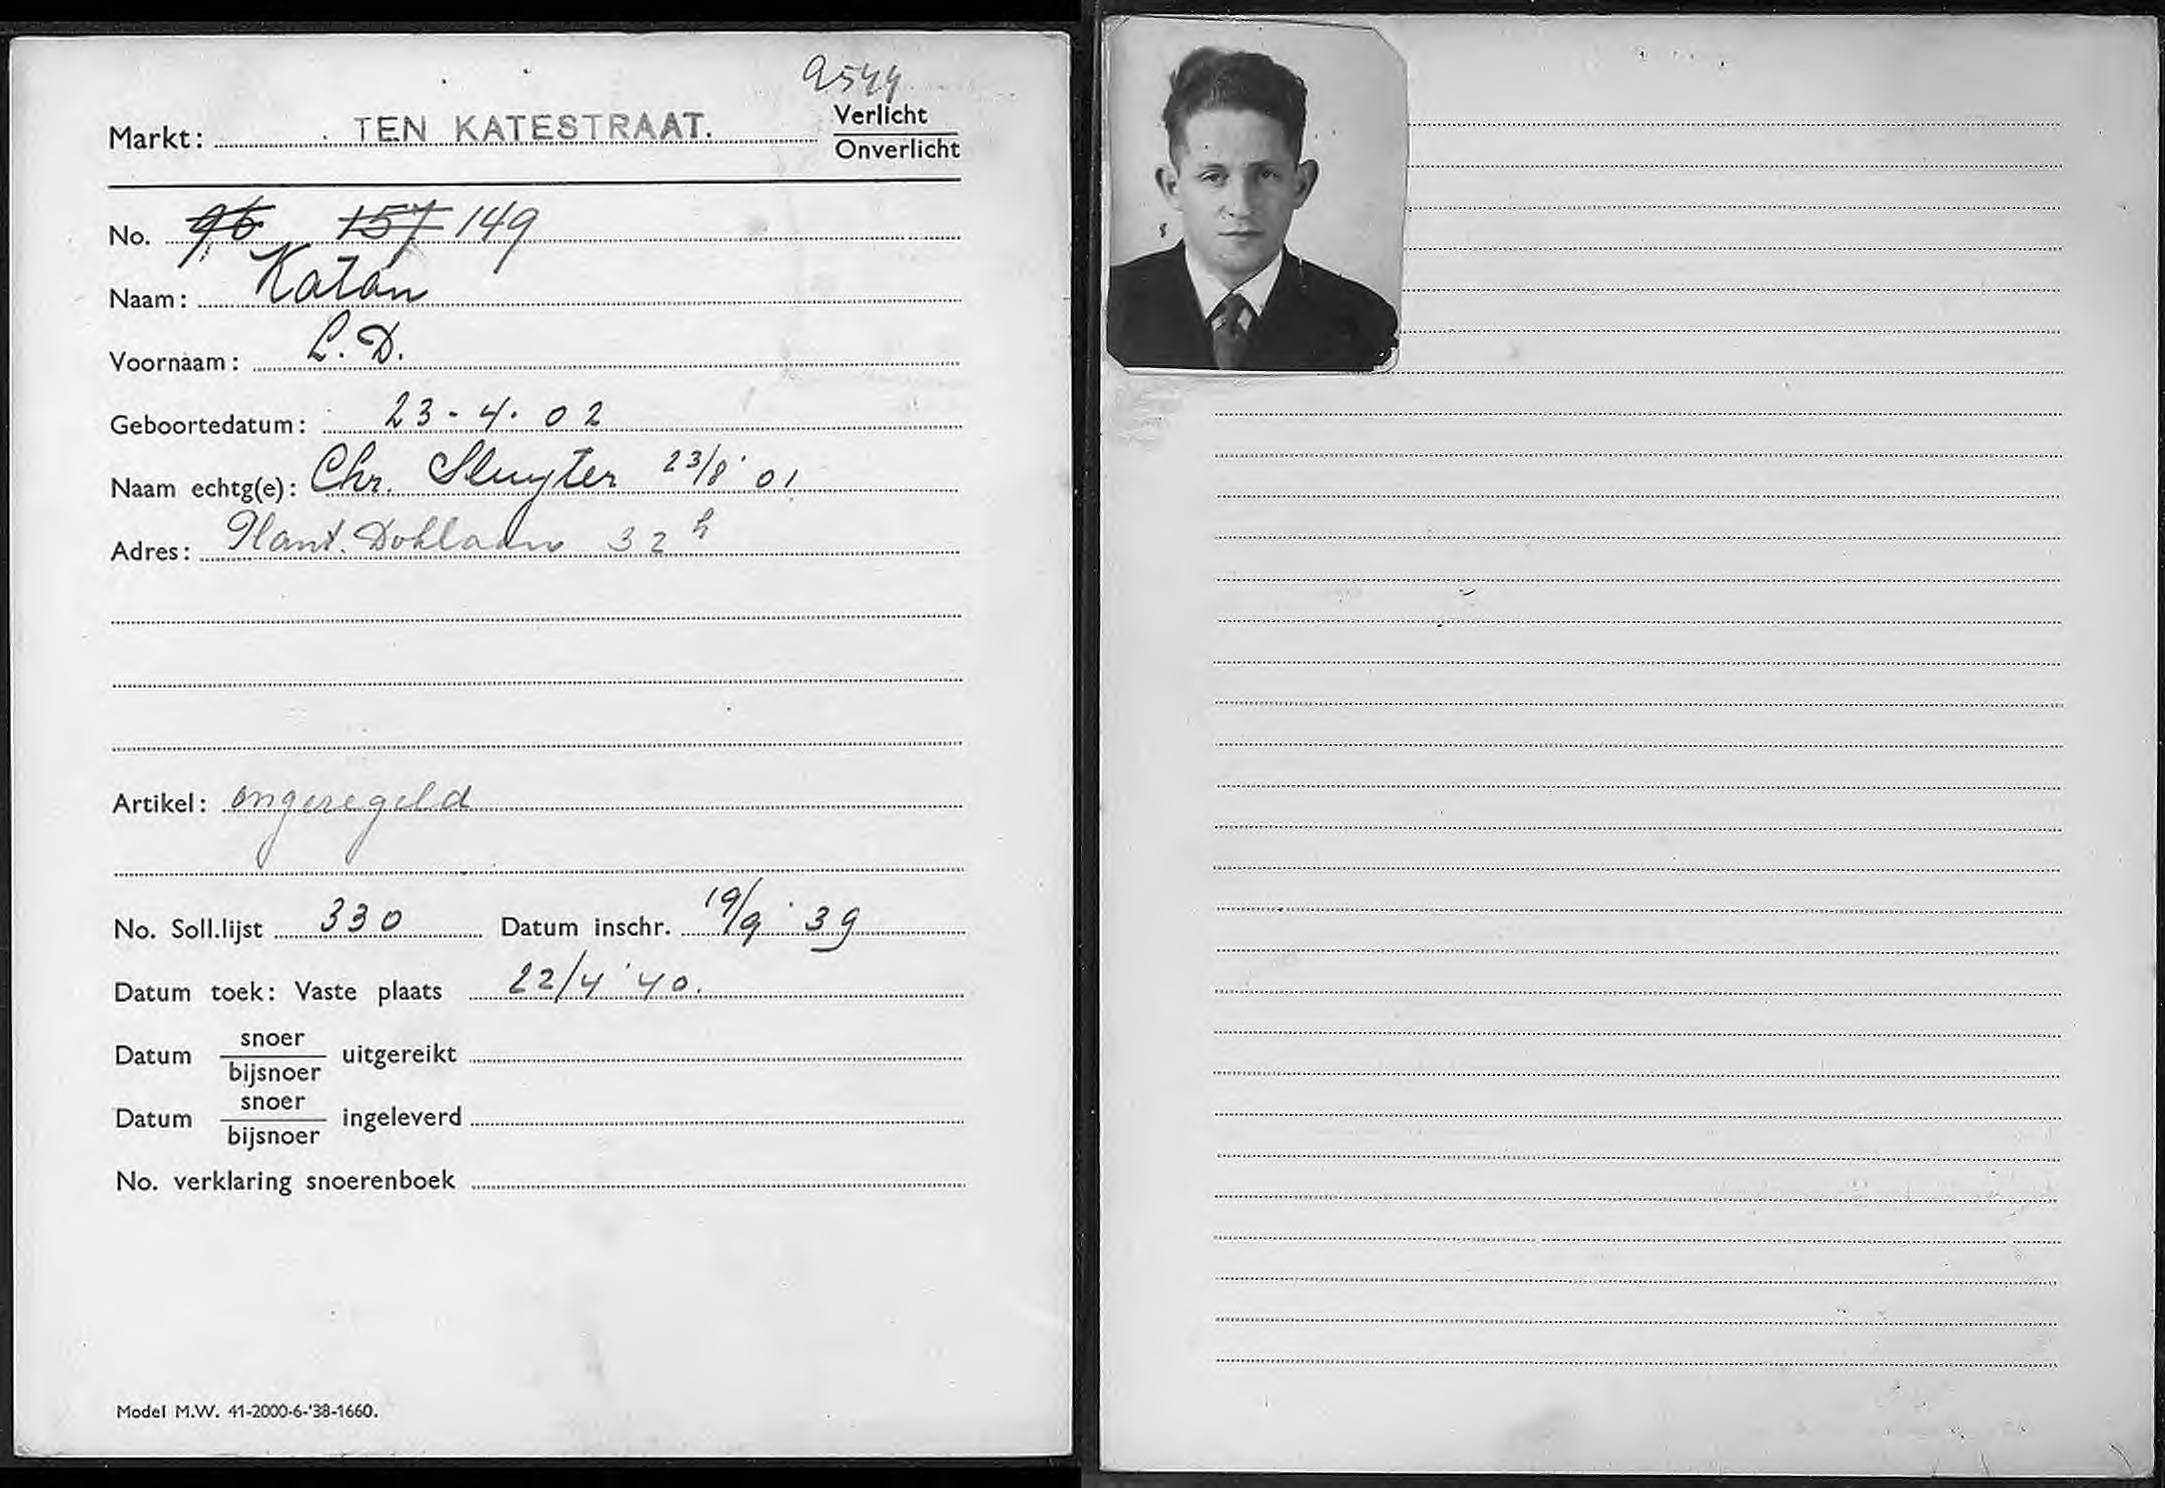 9544
Markt: TEN KATESTRAAT. Verlicht
Onverlicht
No. 96 157 149
Naam: Katan
Voornaam: L. D.
Geboortedatum: 23-4-02
Naam echtg(e): Chr. Sluyter 23/8 '01
Adres: Plant. Doklaan 32 h
Artikel: ongeregeld
No. Soll.lijst 330 Datum inschr. 19/9 '39
Datum toek: Vaste plaats 22/4 '40.
Datum snoer/bijsnoer uitgereikt
Datum snoer/bijsnoer ingeleverd
No. verklaring snoerenboek
Model M.W. 41-2000-6-'38-1660.